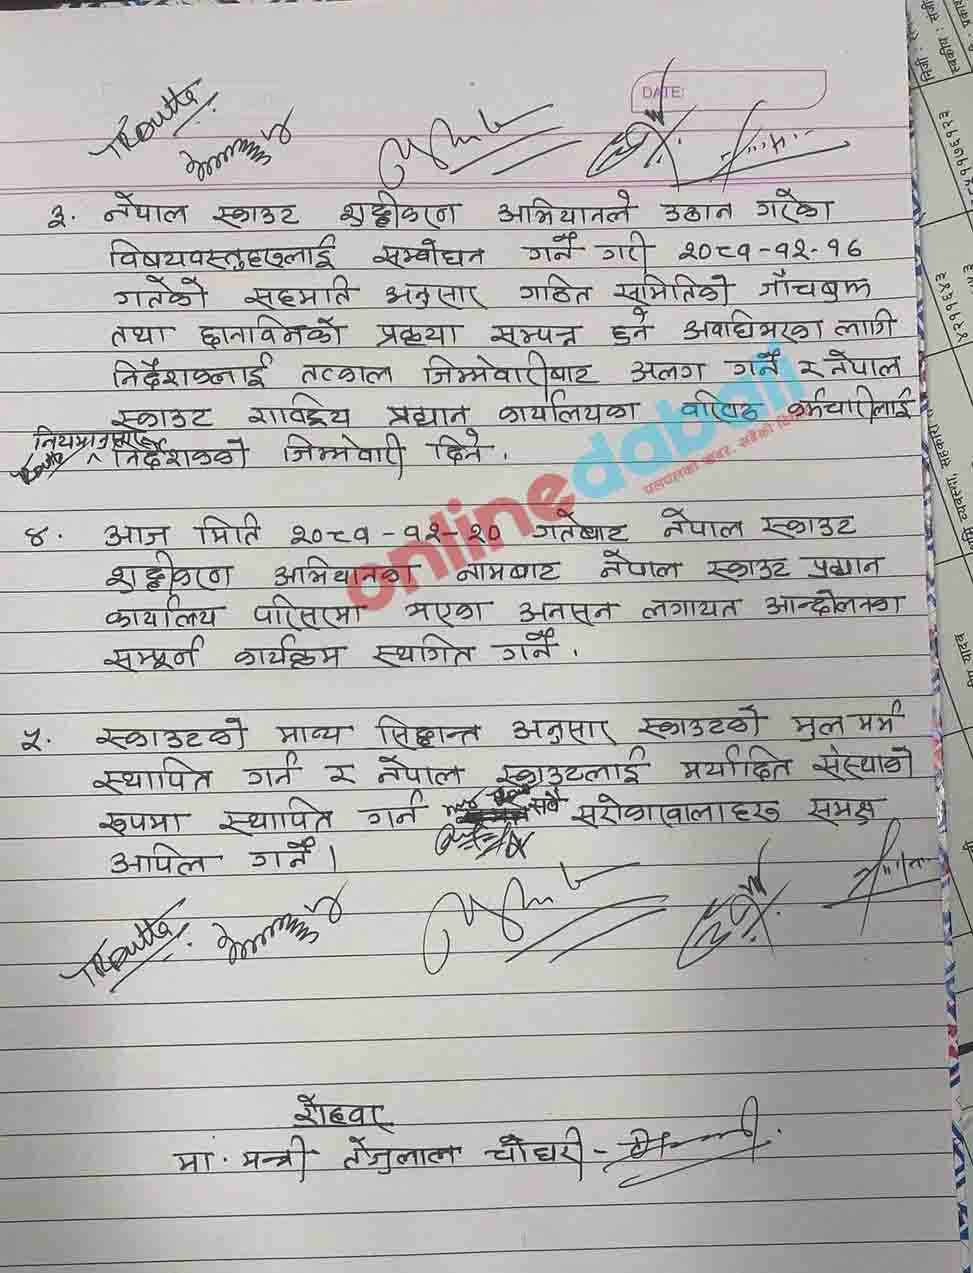 DATE:
TRoutta
३. नेपाल स्काउट शुद्धीकरण अभियानले उठान गरेका
विषयवस्तुहरुलाई सम्बोधन गर्ने गरी २०८१-१२-१६
गतेको सहमति अनुसार गठित समितिको जाँचबुझ
तथा छानविनको प्रकृया सम्पन्न हुने अवधिभरका लागि
निर्देशकलाई तत्काल जिम्मेवारीबाट अलग गर्ने र नेपाल
स्काउट राष्ट्रिय प्रधान कार्यालयका वरिष्ठ कर्मचारीलाई
नियमानुसार
निर्देशकको जिम्मेवारी दिने.
४. आज मिति २०८१-१२-२० गतेबाट नेपाल स्काउट
शुद्धीकरण अभियानका नामबाट नेपाल स्काउट प्रधान
कार्यालय परिसरमा भएका अनसन लगायत आन्दोलनका
सम्पूर्न कार्यक्रम स्थगित गर्ने.
५. स्काउटको मान्य सिद्धान्त अनुसार स्काउटको मुल मर्म
स्थापित गर्न र नेपाल स्काउटलाई मर्यादित संस्थाको
रुपमा स्थापित गर्न सबै सरोकारवालाहरु समक्ष
अपिल गर्ने।
TRoutta
रोहवर
मा. मन्त्री तेजुलाल चौधरी -
onlinedabali
पलपलको खबर, सबैको